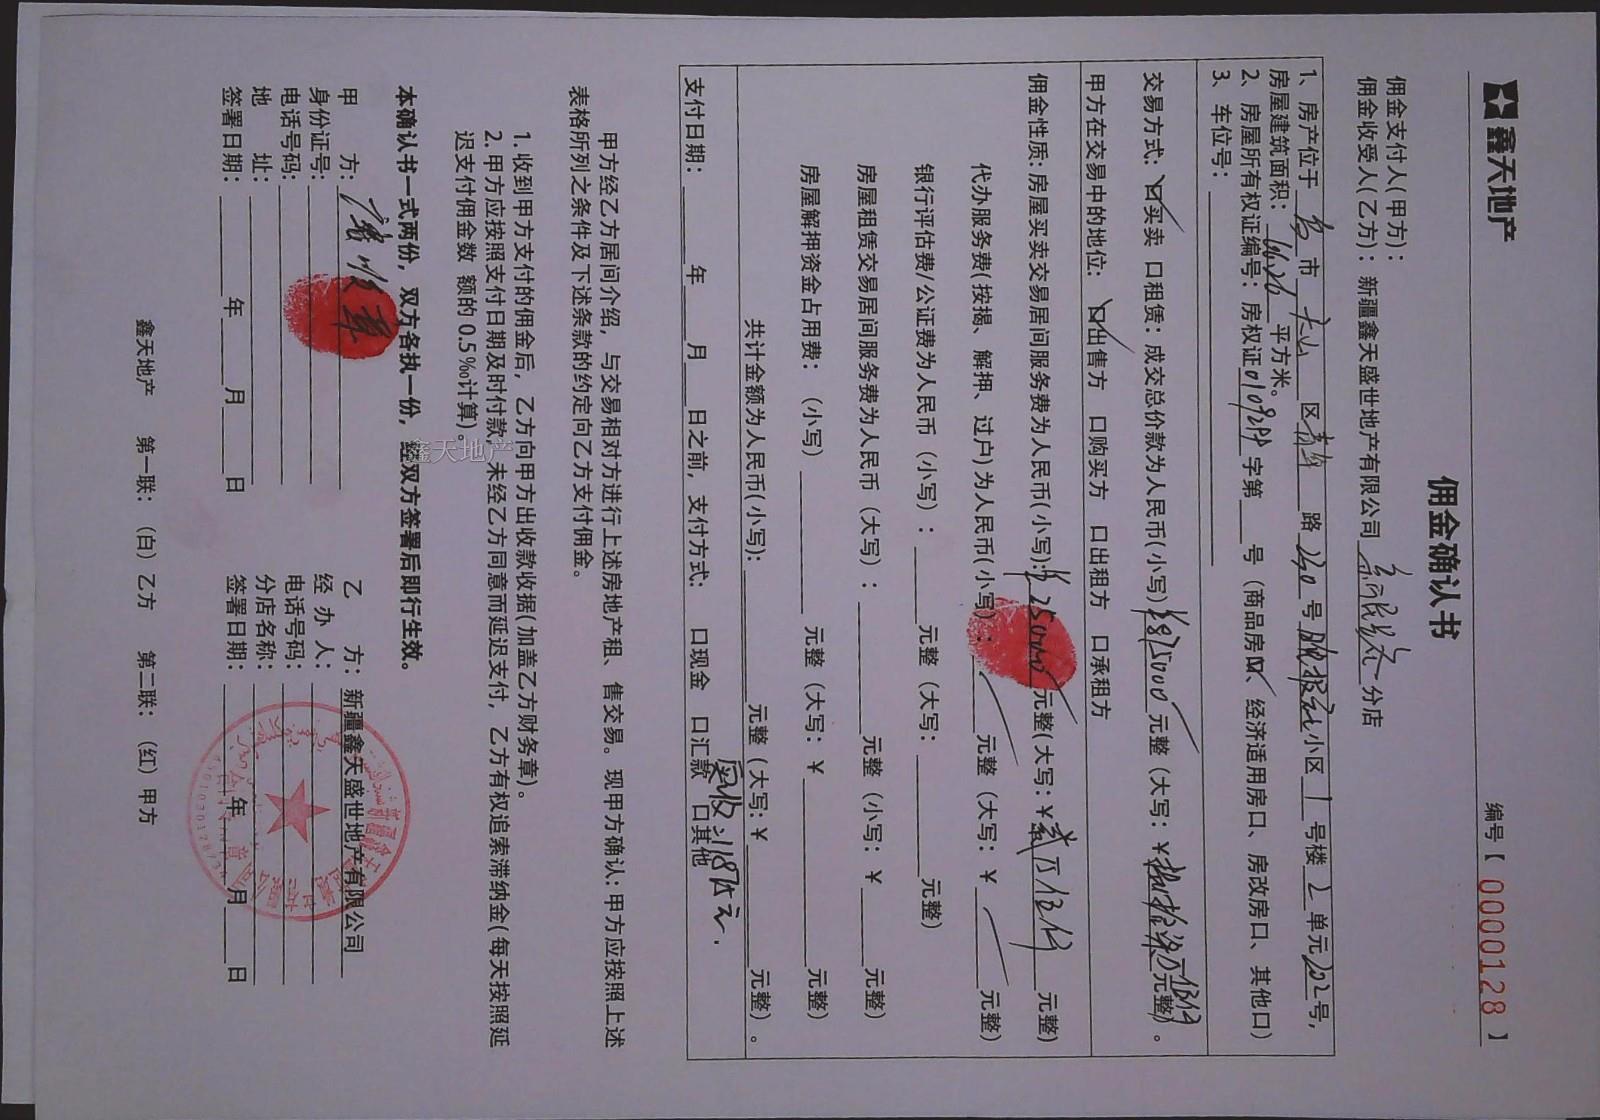 鑫天地产
编号【 0000128 】
佣金确认书
佣金支付人(甲方)：
佣金收受人(乙方)：新疆鑫天盛世地产有限公司 分店
1、房产位于 市 区 路 号 小区 1 号楼 2 单元 202 号,
房屋建筑面积： 平方米。
2、房屋所有权证编号：房权证 字第 号（商品房口、经济适用房口、房改房口、其他口)
3、车位号：
交易方式：口买卖 口租赁：成交总价款为人民币(小写) 元整（大写：¥ 元整）。
甲方在交易中的地位：口出售方 口购买方 口出租方 口承租方
佣金性质:房屋买卖交易居间服务费为人民币(小写): 元整(大写：¥ 元整)
代办服务费(按揭、解押、过户)为人民币(小写)： 元整（大写：¥ 元整）
银行评估费/公证费为人民币（小写）： 元整（大写： 元整）
房屋租赁交易居间服务费为人民币（大写）： 元整（小写：¥ 元整）
房屋解押资金占用费：（小写） 元整（大写：¥ 元整）
共计金额为人民币(小写)： 元整（大写:¥ 元整）。
支付日期： 年 月 日之前，支付方式： 口现金 口汇款 口其他
甲方经乙方居间介绍，与交易相对方进行上述房地产租、售交易。现甲方确认:甲方应按照上述
表格所列之条件及下述条款的约定向乙方支付佣金。
1.收到甲方支付的佣金后，乙方向甲方出收款收据(加盖乙方财务章)。
2.甲方应按照支付日期及时付款,未经乙方同意而延迟支付，乙方有权追索滞纳金(每天按照延
迟支付佣金数 额的 0.5‰计算)。
鑫天地产
本确认书一式两份，双方各执一份，经双方签署后即行生效。
甲 方： 乙 方：新疆鑫天盛世地产有限公司
身份证号： 经 办 人：
电话号码： 电话号码：
地 址： 分店名称：
签署日期： 年 月 日 签署日期： 年 月 日
鑫天地产 第一联：（白）乙方 第二联：（红）甲方